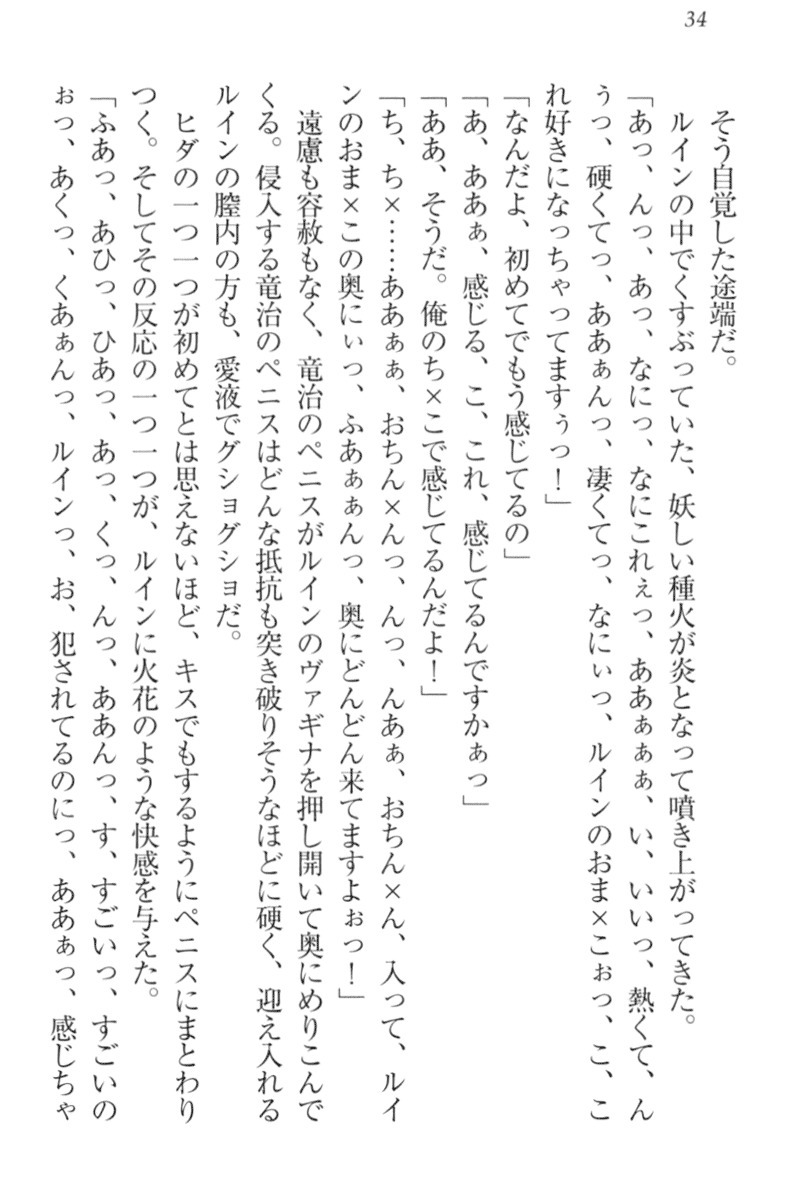 34
そう自覚した途端だ。
ルインの中でくすぶっていた、妖しい種火が炎となって噴き上がってきた。
「あっ、んっ、あっ、なにっ、なにこれぇっ、ああぁぁぁ、い、いいっ、熱くて、ん
ぅっ、硬くてっ、ああぁんっ、凄くてっ、なにぃっ、ルインのおま×こぉっ、こ、こ
れ好きになっちゃってますぅっ！」
「なんだよ、初めてでもう感じてるの」
「あ、ああぁ、感じる、こ、これ、感じてるんですかぁっ」
「ああ、そうだ。俺のち×こで感じてるんだよ！」
「ち、ち×……ああぁぁ、おちん×んっ、んっ、んあぁ、おちん×ん、入って、ルイ
ンのおま×この奥にぃっ、ふあぁぁんっ、奥にどんどん来てますよぉっ！」
遠慮も容赦もなく、竜治のペニスがルインのヴァギナを押し開いて奥にめりこんで
くる。侵入する竜治のペニスはどんな抵抗も突き破りそうなほどに硬く、迎え入れる
ルインの膣内の方も、愛液でグショグショだ。
ヒダの一つ一つが初めてとは思えないほど、キスでもするようにペニスにまとわり
つく。そしてその反応の一つ一つが、ルインに火花のような快感を与えた。
「ふあっ、あひっ、ひあっ、あっ、くっ、んっ、ああんっ、す、すごいっ、すごいの
ぉっ、あくっ、くあぁんっ、ルインっ、お、犯されてるのにっ、ああぁっ、感じちゃ